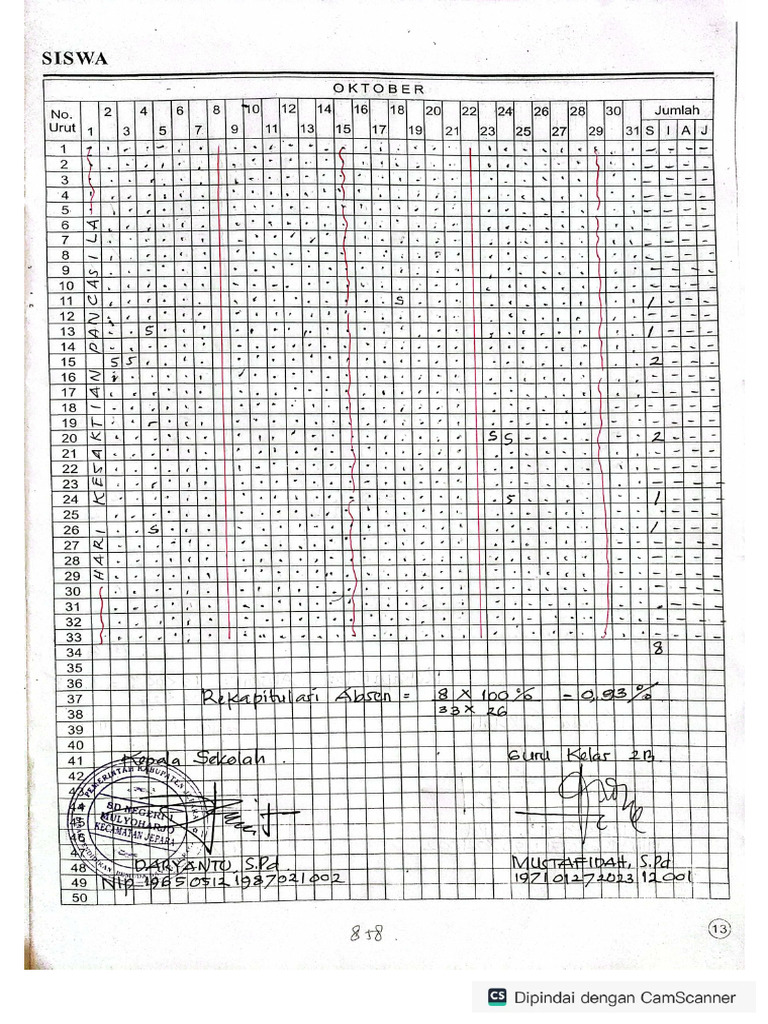 SISWA
OKTOBER
No. Urut 1 2 3 4 5 6 7 8 9 10 11 12 13 14 15 16 17 18 19 20 21 22 23 24 25 26 27 28 29 30 31 Jumlah S I A J
1 - - - -
2 - - - -
3 - - - -
4 - - - -
5 - - - -
6 - - - -
7 - - - -
8 - - - -
9 - - - -
10 - - - -
11 S 1 - - -
12 - - - -
13 S 1 - - -
14 - - - -
15 S S 2 - - -
16 - - - -
17 - - - -
18 - - - -
19 - - - -
20 S S 2 - - -
21 - - - -
22 - - - -
23 - - - -
24 S 1 - - -
25 - - - -
26 S 1 - - -
27 - - - -
28 - - - -
29 - - - -
30 - - - -
31 - - - -
32 - - - -
33 - - - -
34 8
35
36
37
38
39
40
41
42
43
44
45
46
47
48
49
50
HARI KESAKTIAN PANCASILA
Rekapitulari Absen = 8 x 100% = 0,93%
33 x 26
Kepala Sekolah Guru Kelas 2B
PEMERINTAH KABUPATEN JEPARA
SD NEGERI 1
MULYOHARJO
KECAMATAN JEPARA
DARYANTO, S.Pd MUSTAFIDAH, S.Pd
Nip 19650512 1987021002 19710127202312001
858.
13
CS Dipindai dengan CamScanner